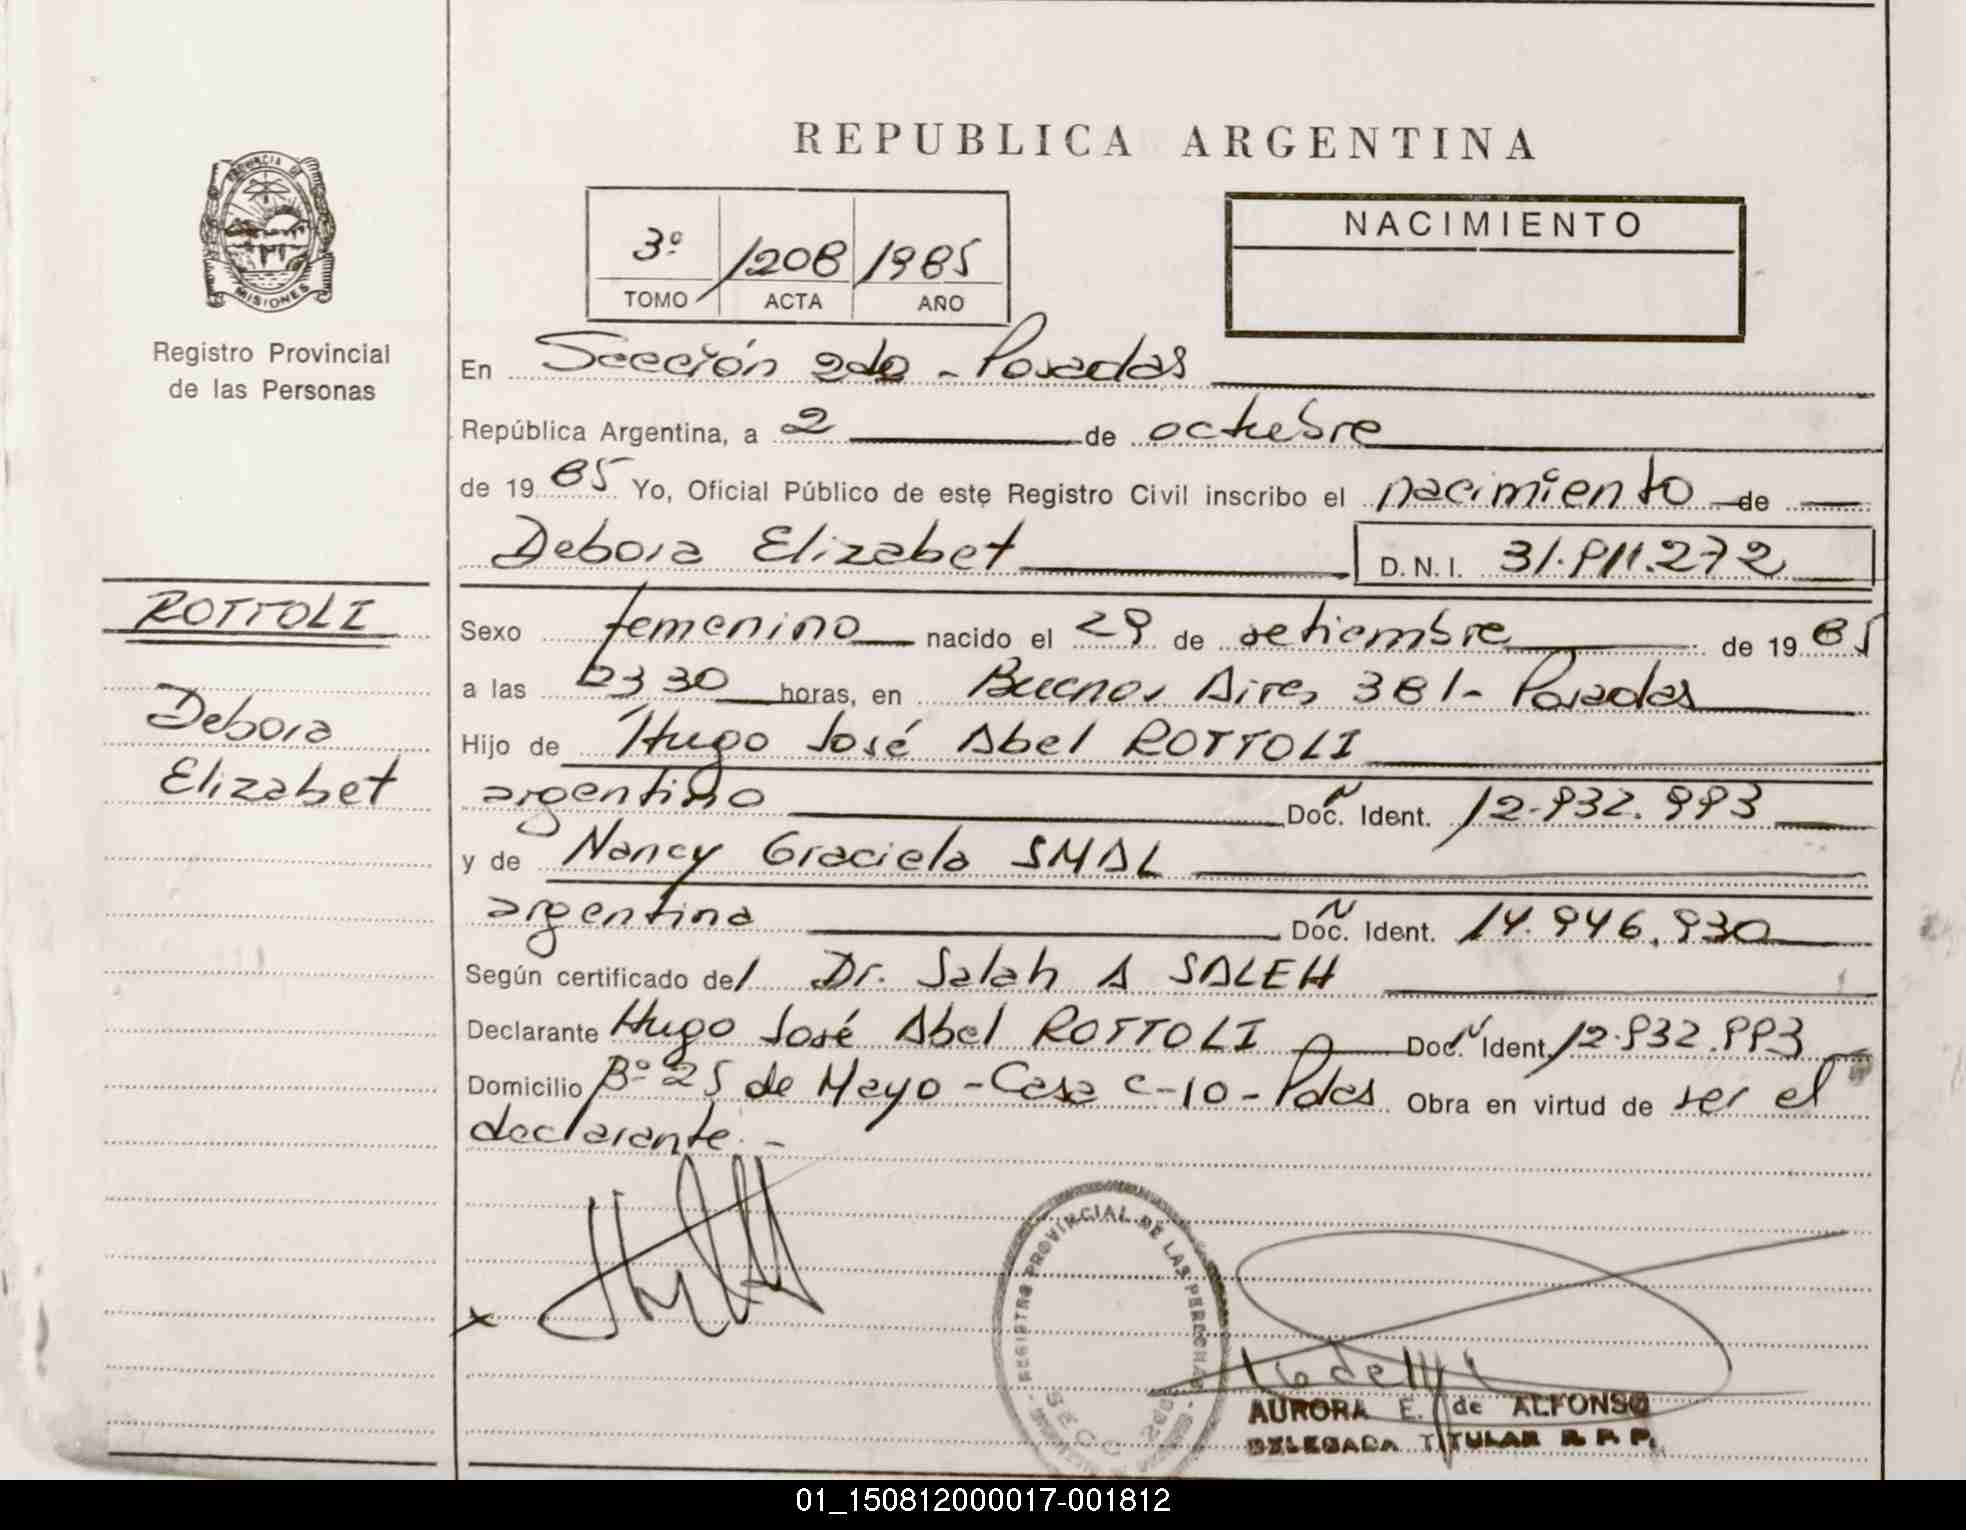 REPUBLICA ARGENTINA
PROVINCIA DE
MISIONES
Registro Provincial
de las Personas
3º 1208 1985
TOMO ACTA AÑO
NACIMIENTO
En Sección 2da - Posadas
República Argentina, a 2 de octubre
de 1985 Yo, Oficial Público de este Registro Civil inscribo el nacimiento de
Debora Elizabet D.N.I. 31.911.272
ROTTOLI
Debora
Elizabet
Sexo femenino nacido el 29 de setiembre de 1985
a las 23 30 horas, en Buenos Aires 381- Posadas
Hijo de Hugo José Abel ROTTOLI
argentino Doc. Ident. 12.932.993
y de Nancy Graciela SMAL
argentina Doc. Ident. 14.946.930
Según certificado del Dr. Salah A SALEH
Declarante Hugo José Abel ROTTOLI Doc. Ident. 12.932.993
Domicilio Bº 25 de Mayo - Casa C-10 - Pdas Obra en virtud de ser el
declarante.-
REGISTRO PROVINCIAL DE LAS PERSONAS
SECC
AURORA E. de ALFONSO
DELEGADA TITULAR R. P. P.
01_150812000017-001812